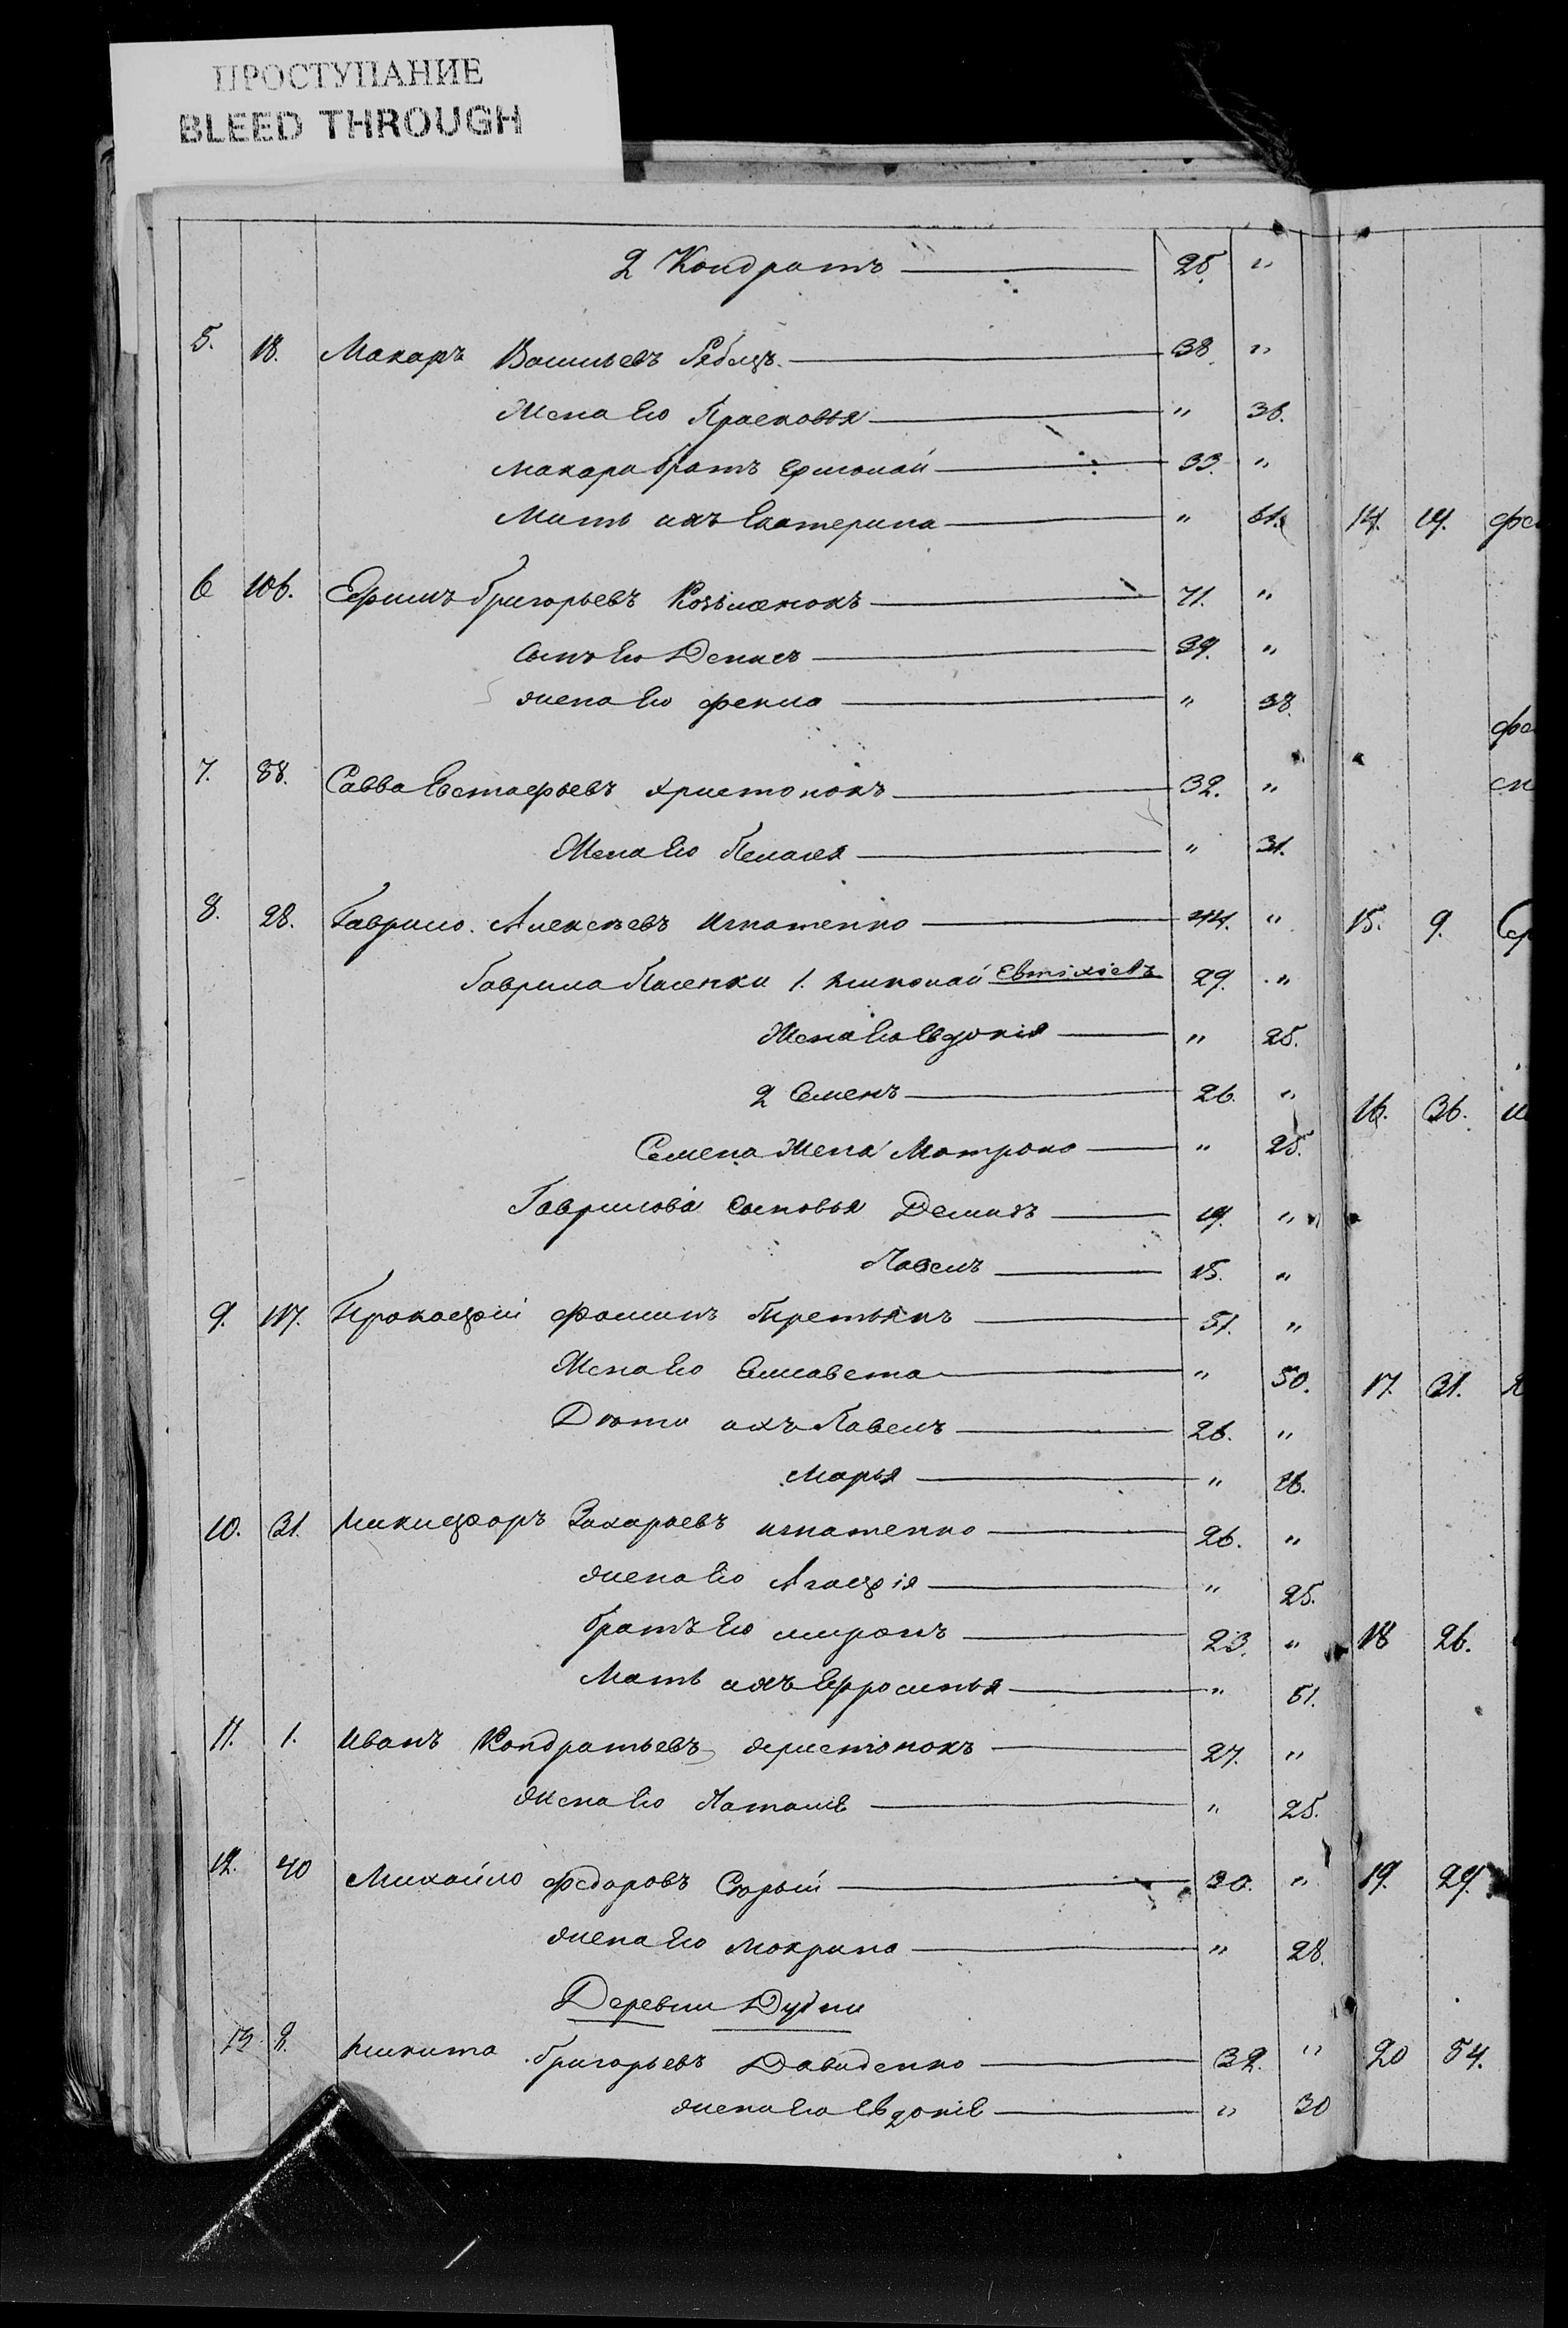 ПРОСТУПАНИЕ
BLEED THROUGH
2 Кондратъ 25. "
5. 18. Макаръ Васильевъ Рябецъ 38. "
Жена Его Прасковья " 36.
Макара братъ Ермолай 33. "
Мать ихъ Екатерина " 61.
6 106. Ефимъ Григорьевъ 71. "
Сынъ Его Денисъ 39. "
жена Его Фекла " 38.
7. 88. Савва Евстафьевъ Христонокъ 32. "
Жена Его Пелагея " 31.
8. 28. Гаврило Алексѣевъ Игнатенко 44. "
Гаврила 1. Николай Евтихіевъ 29. "
Жена Его Евдокія " 25.
2 Семенъ 26. "
Семена Жена Матрона " 25.
Гаврилова Сыновья Демидъ 19. "
Павелъ 15. "
9. 117. Прокофій Фоминъ Третьякъ 51. "
Жена Его Елисавета " 50.
Дѣти ихъ Павелъ 26. "
Марья " 16.
10. 31. Никифоръ Захарьевъ Игнатенко 26. "
жена Его Агафія " 25.
братъ Его Миронъ 23. "
Мать ихъ Ефросинья " 51.
11. 1. Иванъ Кондратьевъ Христонокъ 27. "
жена Его Наталія " 25.
12. 40 Михайло Федоровъ Сѣрый 30. "
жена Его Мокрина " 28.
Деревни Дубни
13 2. Никита Григорьевъ Давиденко 32. "
жена Его Евдокія " 30
14. 14.
15. 9.
16. 36.
17. 31.
18 26.
19. 29.
20 54.